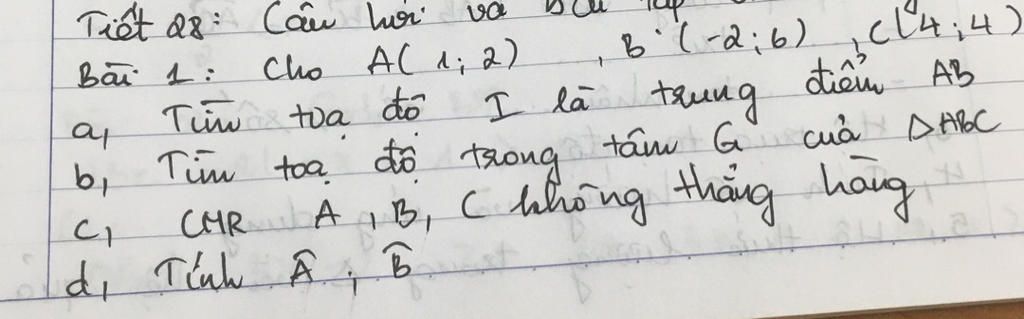 Tiết 28: Câu hỏi và bài tập
Bài 1: Cho A(1;2), B(-2;6), C(4;4)
a, Tìm toạ độ I là trung điểm AB
b, Tìm toạ độ trong tâm G của △ABC
c, CMR A, B, C không thẳng hàng
d, Tính Â; B̂